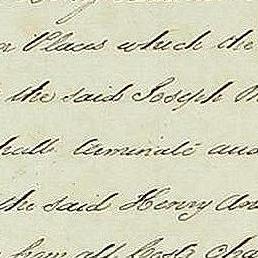 Places which the
the said Joseph
shall terminate and
the said Henry An
from all Costs Cha